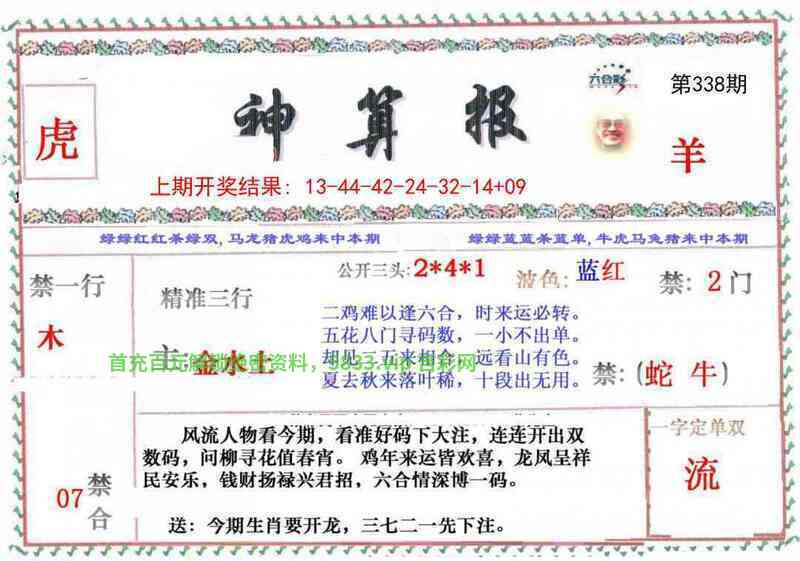 六合彩
第338期
虎
神算报
羊
上期开奖结果: 13-44-42-24-32-14+09
绿绿红红杀绿双,马龙猪虎鸡来中本期
绿绿蓝蓝杀蓝单,牛虎马兔猪来中本期
禁一行
木
精准三行
主
金水土
公开三头:2*4*1
波色:蓝红
禁:2门
二鸡难以逢六合，时来运必转。
五花八门寻码数，一小不出单。
却见三五来相合，远看山有色。
夏去秋来落叶稀，十段出无用。
禁:(蛇 牛)
首充百元解锁绝密资料，
07
禁合
风流人物看今期，看准好码下大注，连连开出双
数码，问柳寻花值春宵。鸡年来运皆欢喜，龙凤呈祥
民安乐，钱财扬禄兴君招，六合情深博一码。
送：今期生肖要开龙，三七二一先下注。
一字定单双
流